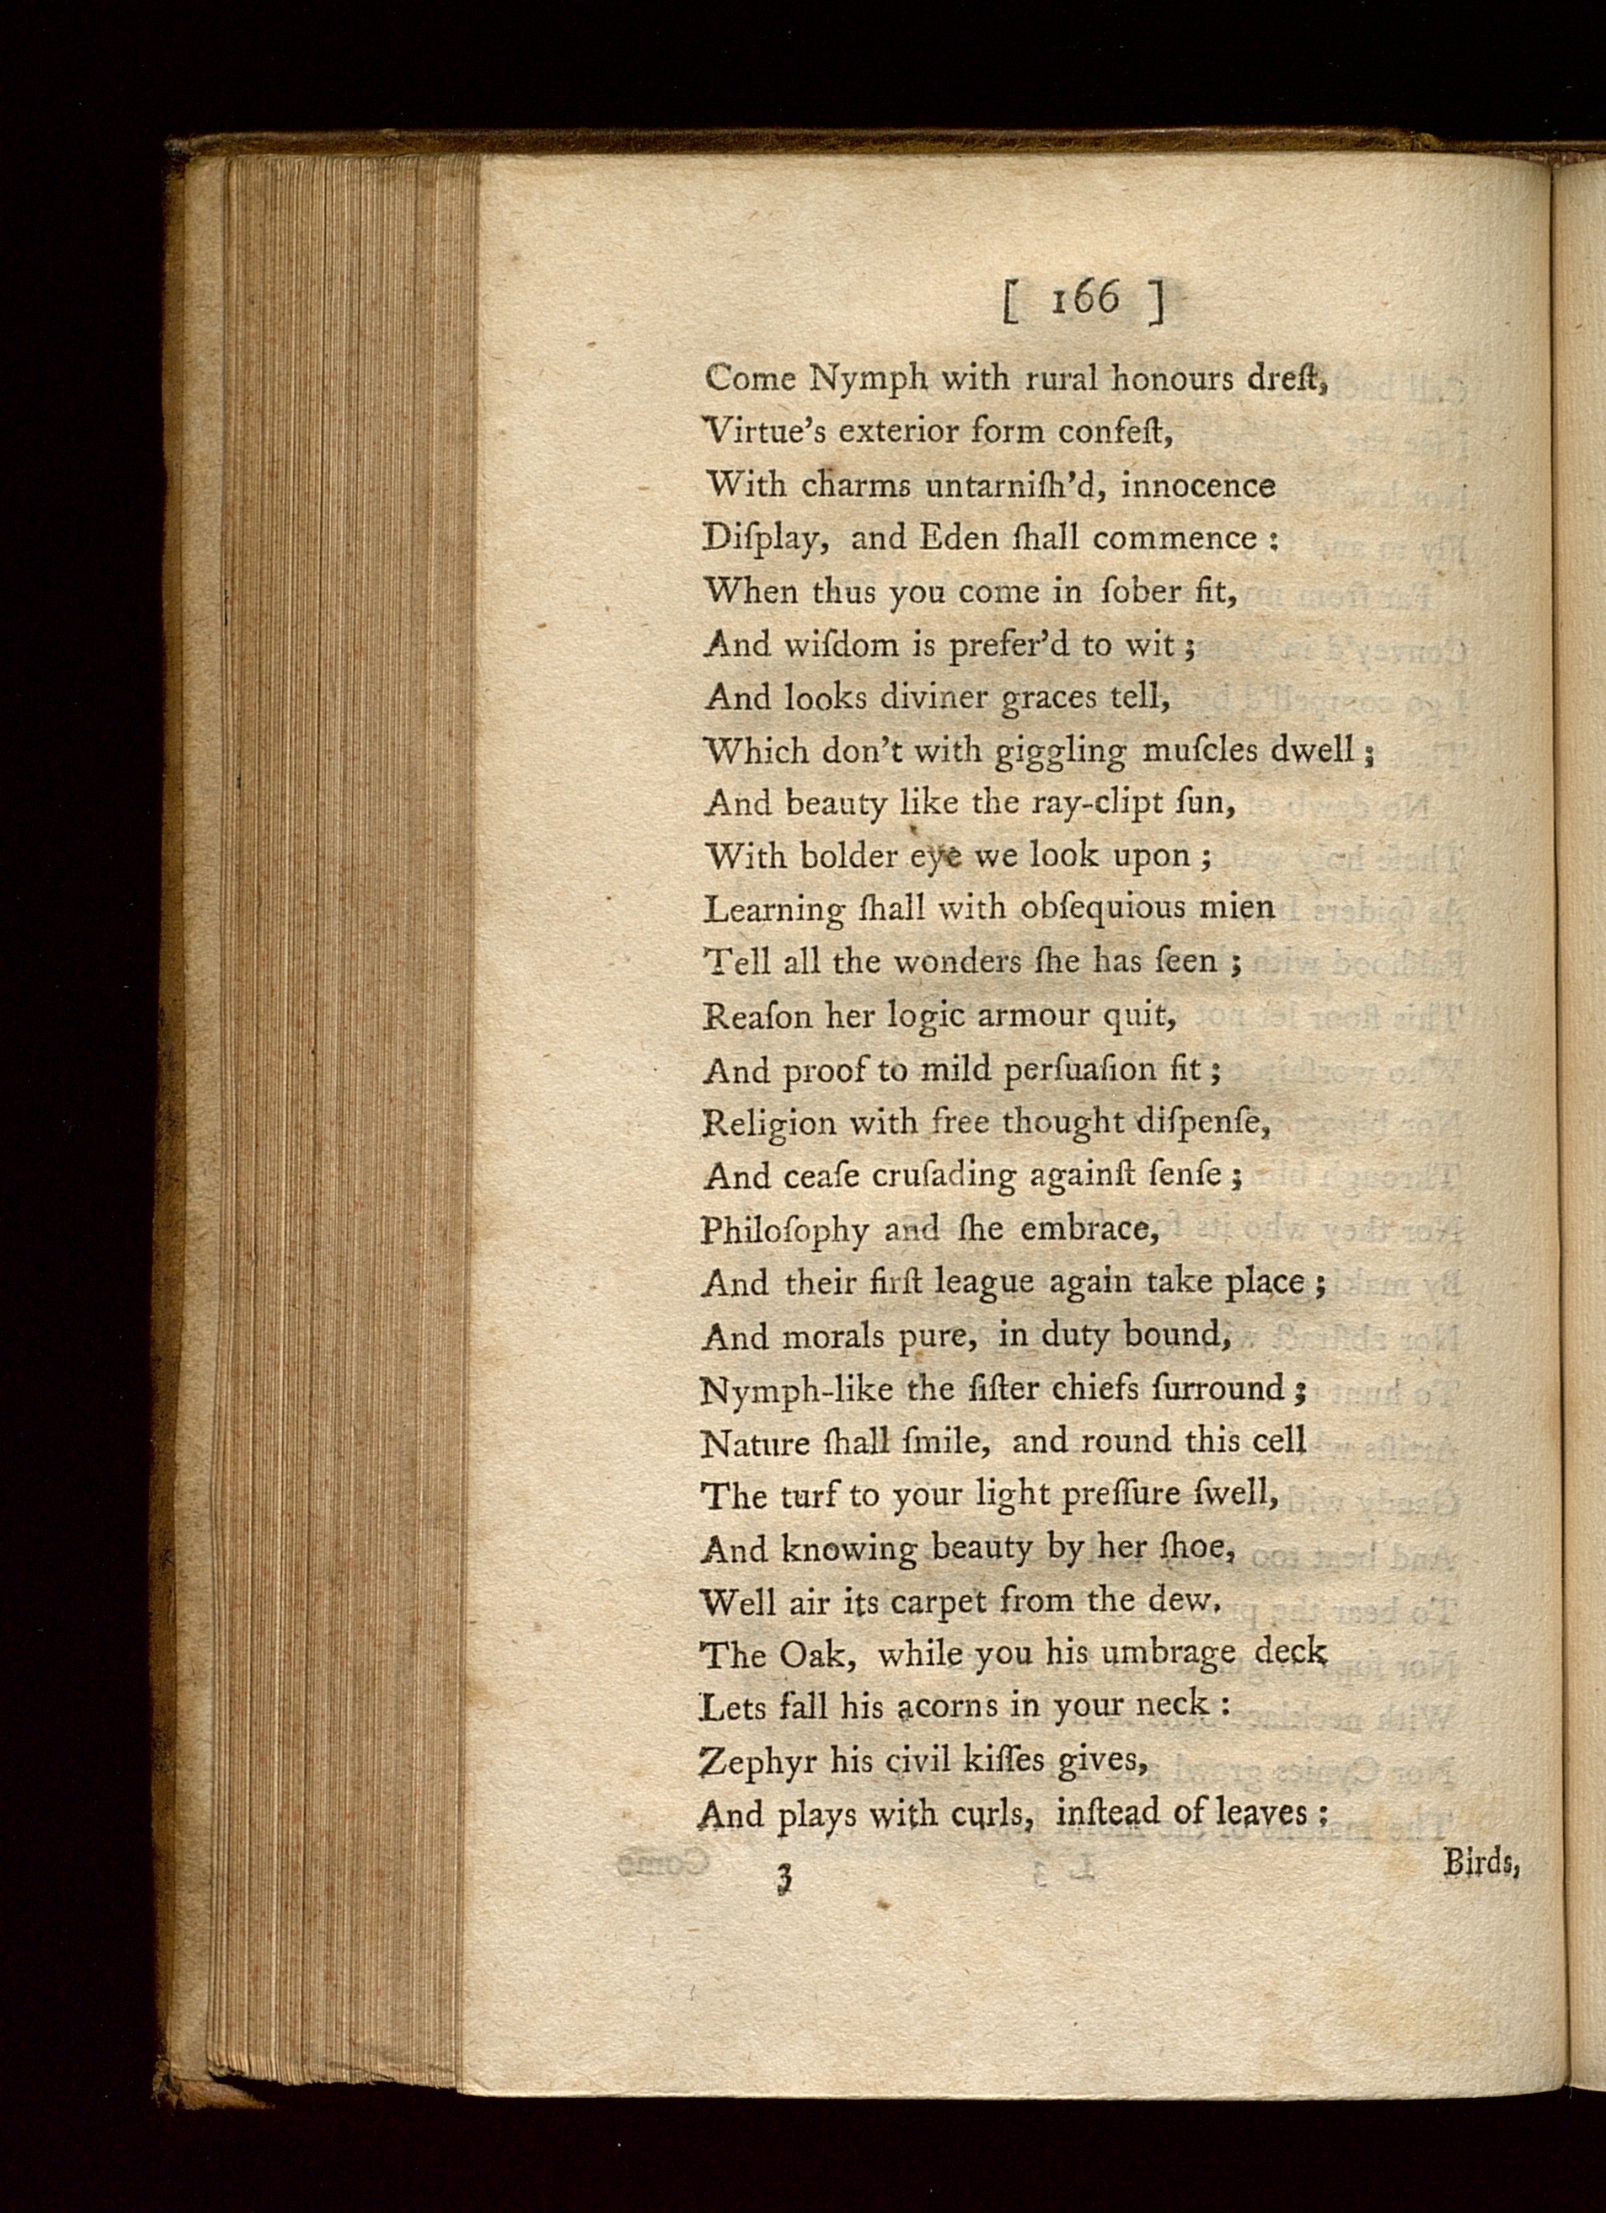 [ 166 ]
Come Nymph with rural honours dreſt,
Virtue's exterior form confeſt,
With charms untarniſh'd, innocence
Diſplay, and Eden ſhall commence :
When thus you come in ſober fit,
And wiſdom is prefer'd to wit ;
And looks diviner graces tell,
Which don't with giggling muſcles dwell ;
And beauty like the ray-clipt ſun,
With bolder eye we look upon ;
Learning ſhall with obſequious mien
Tell all the wonders ſhe has ſeen ;
Reaſon her logic armour quit,
And proof to mild perſuaſion fit ;
Religion with free thought diſpenſe,
And ceaſe cruſading againſt ſenſe ;
Philoſophy and ſhe embrace,
And their firſt league again take place ;
And morals pure, in duty bound,
Nymph-like the ſiſter chiefs ſurround ;
Nature ſhall ſmile, and round this cell
The turf to your light preſſure ſwell,
And knowing beauty by her ſhoe,
Well air its carpet from the dew.
The Oak, while you his umbrage deck
Lets fall his acorns in your neck :
Zephyr his civil kiſſes gives,
And plays with curls, inſtead of leaves :
3 Birds,